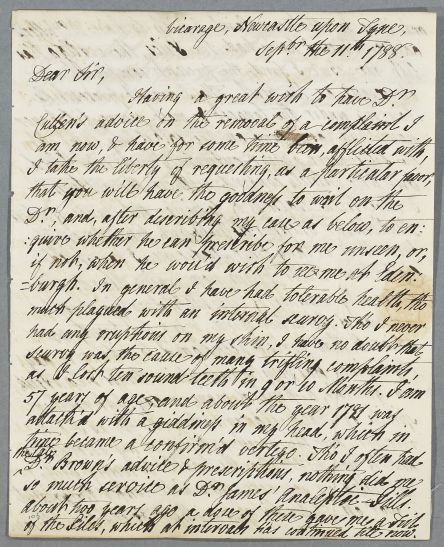 Vicarage, Newcastle upon Tyne,
Sepbr. the 11th. 1788.
Dear Sir,
Having a great wish to have Dr.
Cullen's advice in the removal of a complaint I
am now, & have for some time been, afflicted with,
I take the liberty of requesting, as a particular favor,
that you will have the goodness to wait on the
Dr., and, after describing my case as below, to en:
:quire whether he can prescribe for me unseen, or,
if not, when he would wish to see me at Eden:
:burgh. In general I have had tolerable health, tho
much plagued with an internal scurvy. Tho I never
had any eruptions on my skin, I have no doubt that
scurvy was the cause of many trifling complaints,
as I lost ten sound teeth in 9 or 10 Months. I am
57 years of age, and about the year 1781 was
attack'd with a giddiness in my head, which in
time became a confirm'd vertigo. Tho I often had
the late
Dr. Brown's advice & prescriptions, nothing did me
so much service as Dr. James' Analeptic Pills,
about two years ago a dose of these gave me a fit
of the Piles, which at intervals has continued till now.